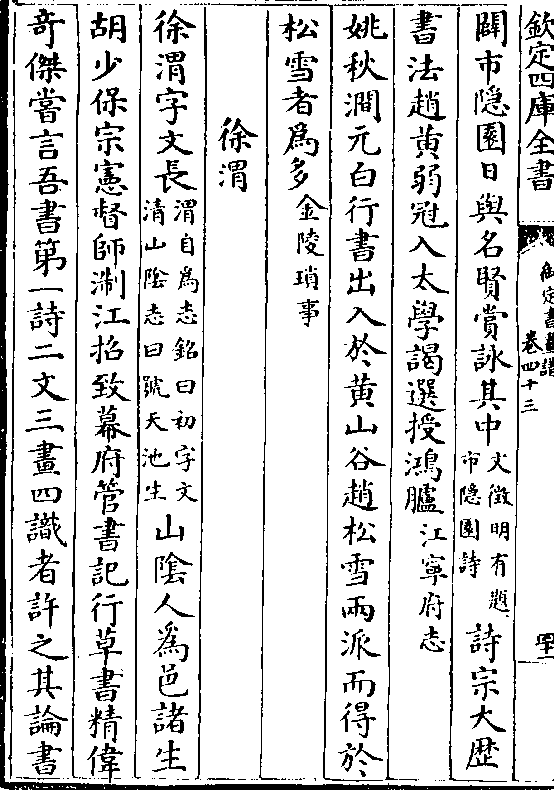 欽定四庫全書
御定書畫譜
卷四十三
闢市隠園日與名賢賞詠其中文徵明有題市隠園詩詩宗大歴
書法趙黄弱冠入太學謁選授鴻臚江寧府志
姚秋澗元白行書出入於黄山谷趙松雪兩派而得於
松雪者為多金陵瑣事
徐渭
徐渭字文長渭自為志銘曰初字文清山隂志曰號天池生山隂人為邑諸生
胡少保宗憲督師淛江招致幕府管書記行草書精偉
竒傑嘗言吾書第一詩二文三畫四識者許之其論書